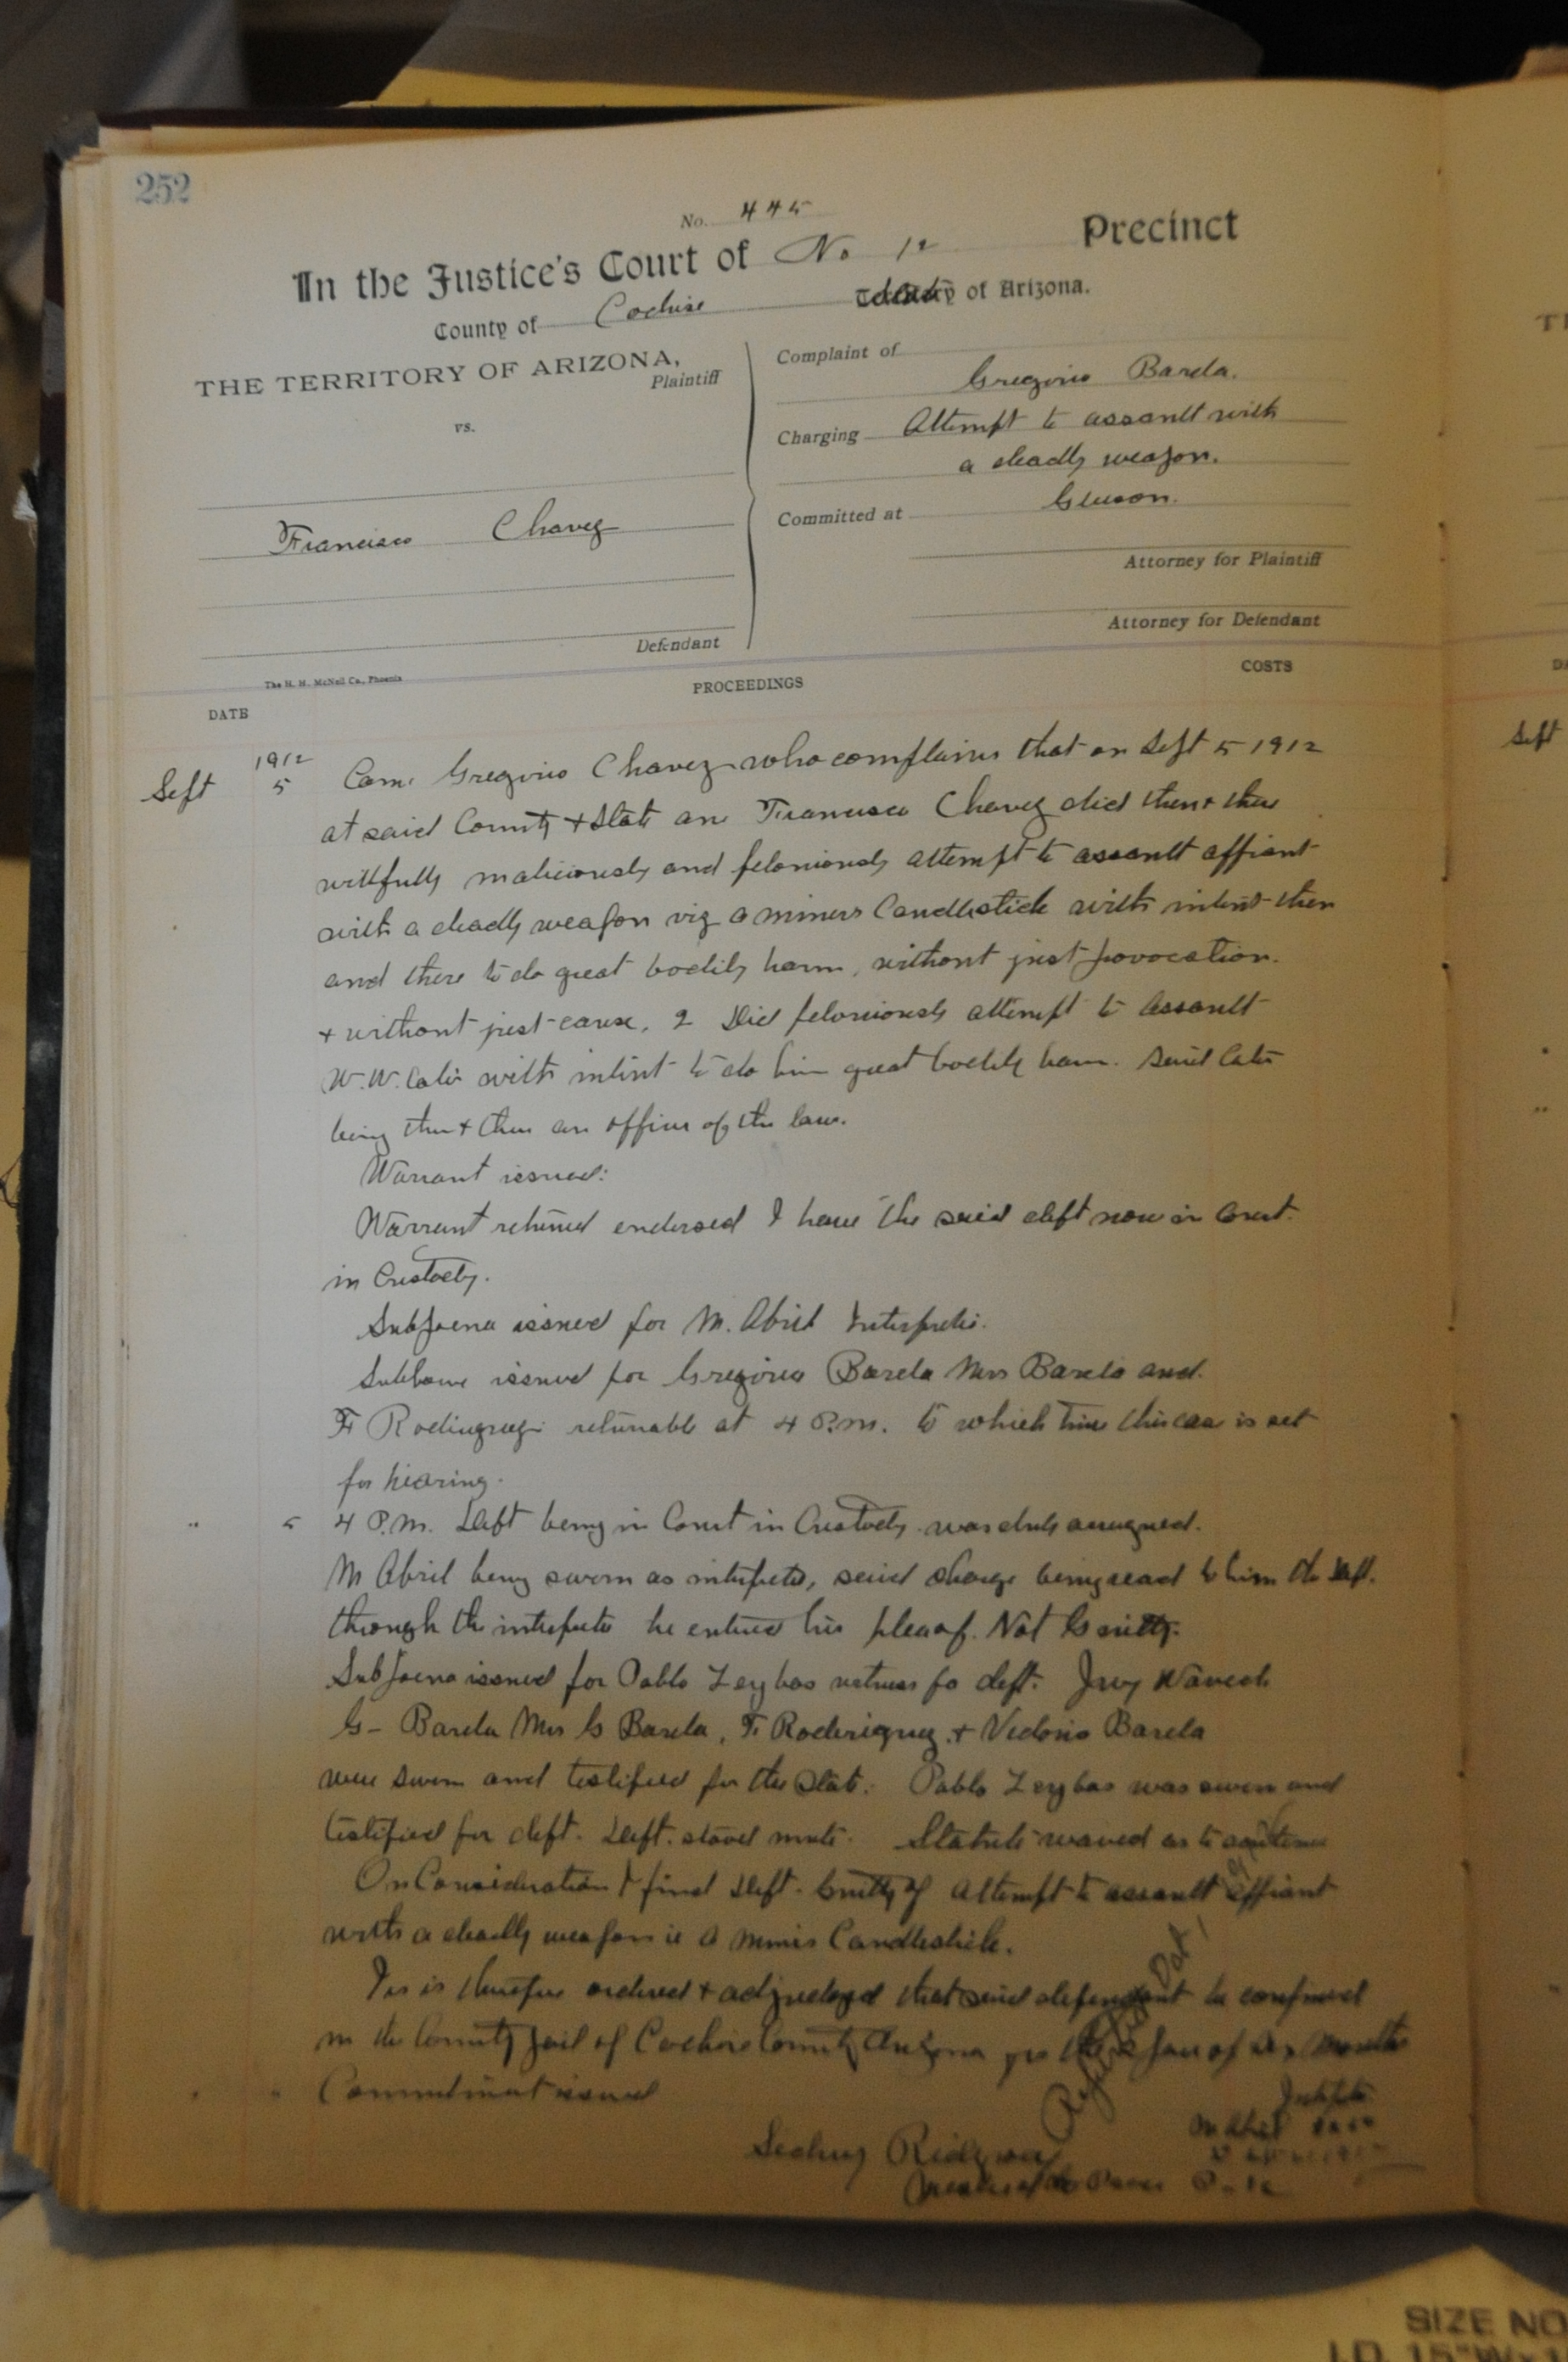 252
No. 445
In the Justice's Court of No 12 Precinct
County of Cochise State of Arizona.
THE TERRITORY OF ARIZONA,
Plaintiff
vs.
Francisco Chavez
Defendant
Complaint of
Gregorio Barela.
Charging Attempt to assault with
a deadly weapon.
Committed at Gleeson.
Attorney for Plaintiff
Attorney for Defendant
The H. H. McNeil Co., Phoenix
DATE PROCEEDINGS COSTS
1912
Sept 5 Came Gregorio Chavez who complains that on Sept 5 1912
at said County & State one Francisco Chavez did then & there
willfully maliciously and feloniously attempt to assault affiant
with a deadly weapon viz a miners Candlestick with intent then
and there to do great bodily harm, without just provocation.
& without just cause, 2 Did feloniously attempt to assault
W. W. with intent to do him great bodily harm. Said
being then & there an officer of the law.
Warrant issued:
Warrant returned endorsed I have the said deft now in Court.
in Custody.
Subpoena issued for M. Abril Interpreter.
Subpoena issued for Gregorio Barela Mrs Barela and
F Rodriguez returnable at 4 P.M. to which time this case is set
for hearing.
" 5 4 P.M. Deft being in Court in Custody was duly arraigned.
M Abril being sworn as interpreter, said charge being read to him the deft.
through the interpreter he entered his plea of Not Guilty.
Subpoena issued for Pablo Leybas witness for deft.
G- Barela Mrs G Barela, F. Roderiquez & Barela
were sworn and testified for the State. Pablo Leybas was sworn and
testified for deft. Deft. stood mute. Statute waved as to sentence
On Consideration I find Deft. Guilty of Attempt to assault affiant
with a deadly weapon ie a miners Candlestick.
It is therefore ordered & adjudged that said defendant be confined
in the County Jail of Cochise County Arizona for the of six months
" " Commitment issued
M Abril
Ridgway
Justice of the Peace
Sept
SIZE NO
I.D. 15"W